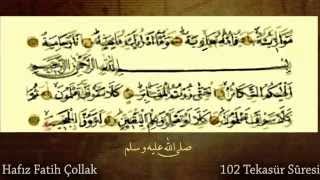 مَوَازِينُهُ فَأُمُّهُ هَاوِيَةٌ وَمَا أَدْرَاكَ مَا هِيَهْ نَارٌ حَامِيَةٌ
بِسْمِ اللَّهِ الرَّحْمَنِ الرَّحِيمِ
أَلْهَاكُمُ التَّكَاثُرُ حَتَّى زُرْتُمُ الْمَقَابِرَ كَلَّا سَوْفَ تَعْلَمُونَ ثُمَّ
كَلَّا سَوْفَ تَعْلَمُونَ كَلَّا لَوْ تَعْلَمُونَ عِلْمَ الْيَقِينِ لَتَرَوُنَّ الْجَحِيمَ
صلى الله عليه وسلم
Hafız Fatih Çollak
102 Tekasür Sûresi